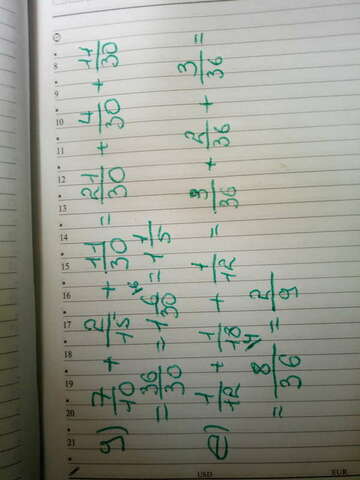 д) 7/10 + 2/15 + 11/30 = 21/30 + 4/30 + 11/30
= 36/30 = 1 6/30 /6 = 1 1/5
е) 1/12 + 1/18 + 1/12 = 3/36 + 2/36 + 3/36 =
= 8/36 /4 = 2/9
21 20 19 18 17 16 15 14 13 12 11 10 9 8
USD
EUR